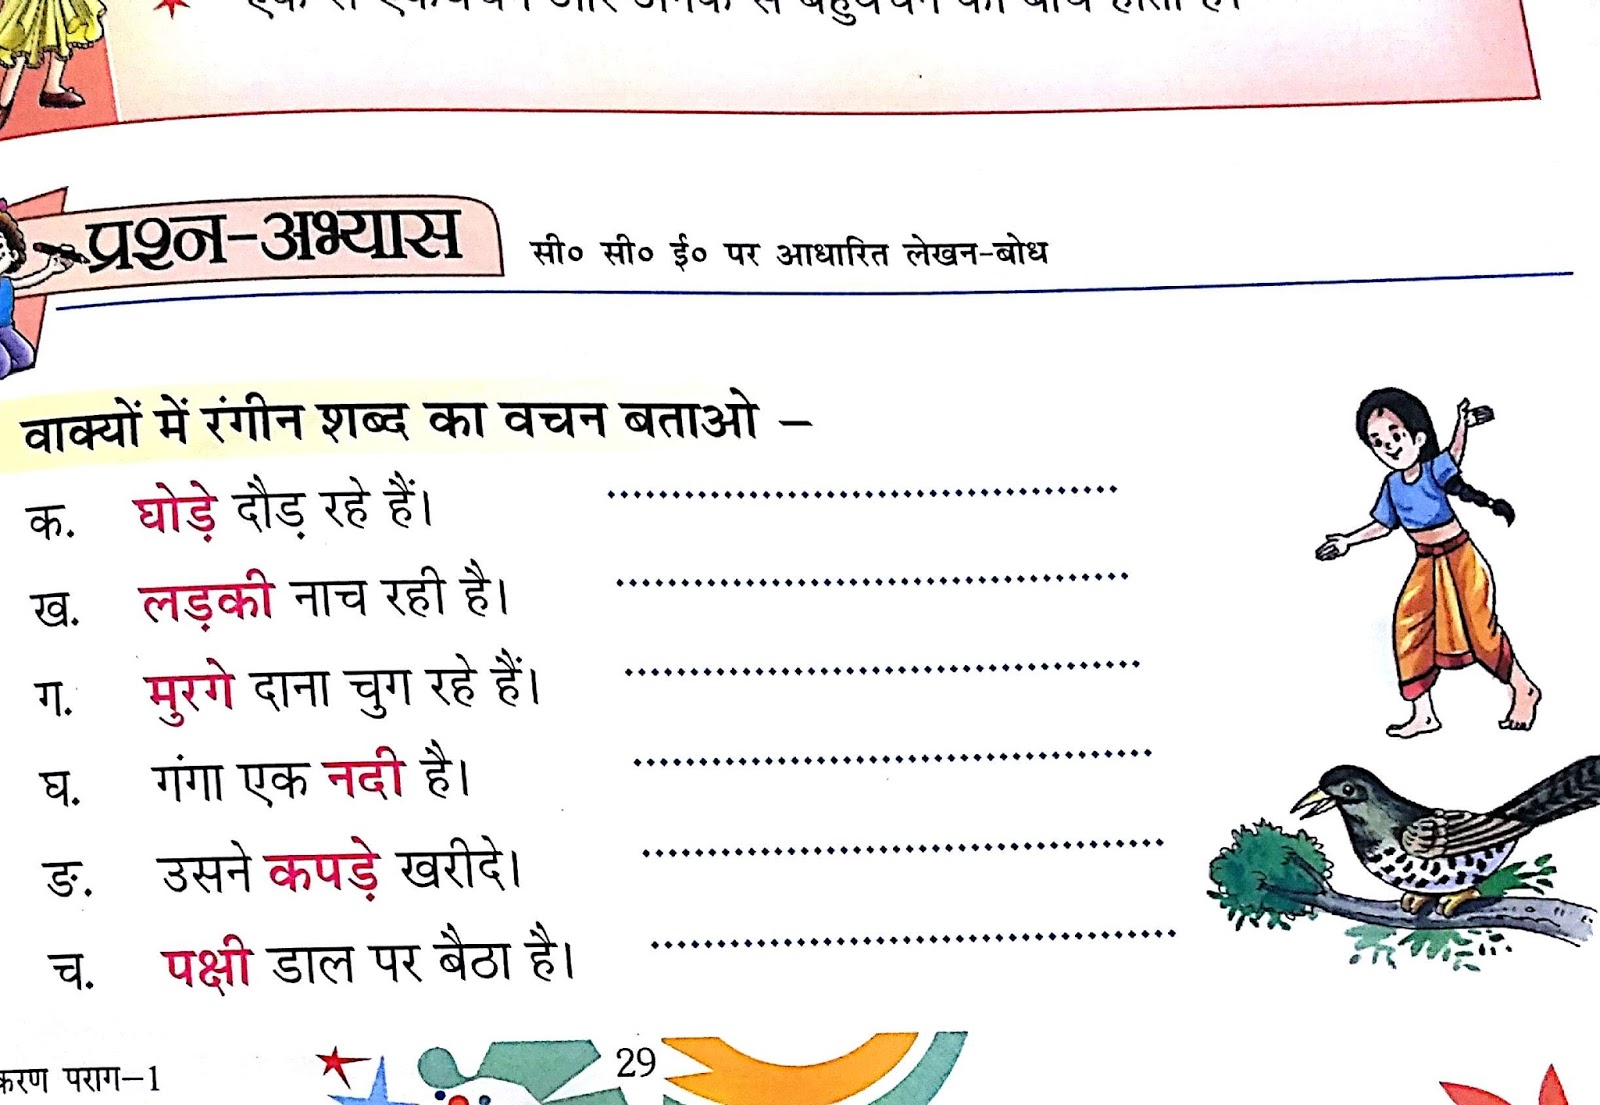 एक से एकवचन और अनेक से बहुवचन का बोध होता है।
प्रश्न-अभ्यास
सी० सी० ई० पर आधारित लेखन-बोध
वाक्यों में रंगीन शब्द का वचन बताओ –
क. घोड़े दौड़ रहे हैं। ........................................
ख. लड़की नाच रही है। ........................................
ग. मुरगे दाना चुग रहे हैं। ........................................
घ. गंगा एक नदी है। ........................................
ङ. उसने कपड़े खरीदे। ........................................
च. पक्षी डाल पर बैठा है। ........................................
करण पराग–1
29